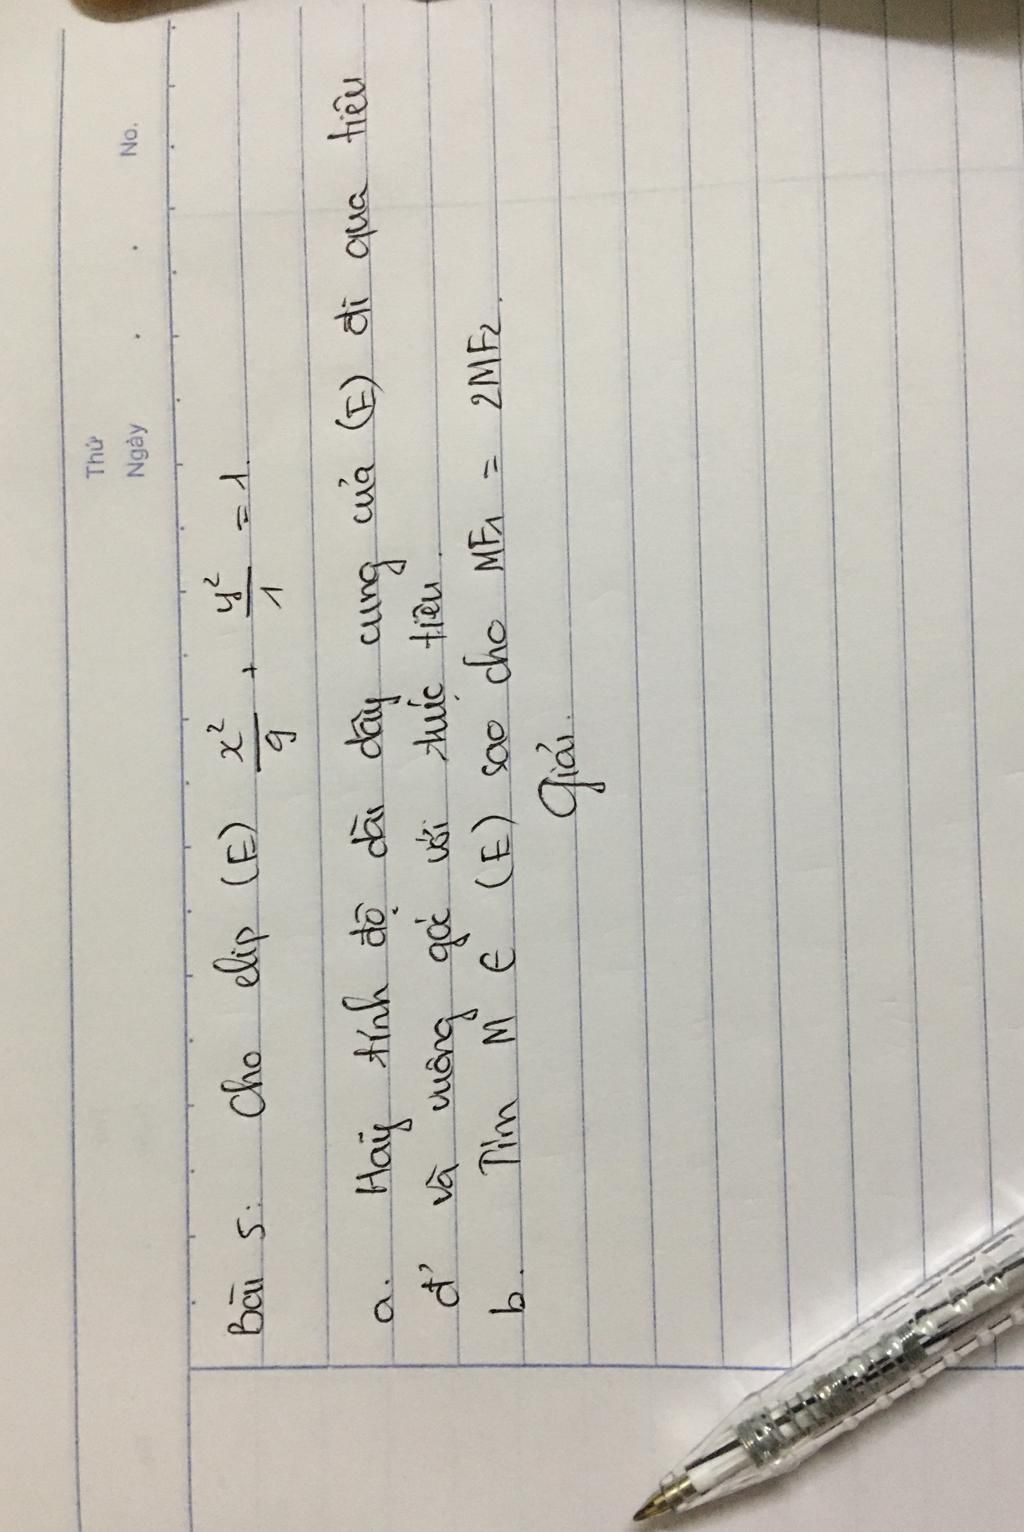 Thứ
Ngày . . No.
Bài 5: Cho elip (E) x²/9 + y²/1 = 1.
a. Hãy tính độ dài dây cung của (E) đi qua tiêu
đ' và vuông góc với trục tiêu.
b. Tìm M ∈ (E) sao cho MF1 = 2MF2.
Giải.